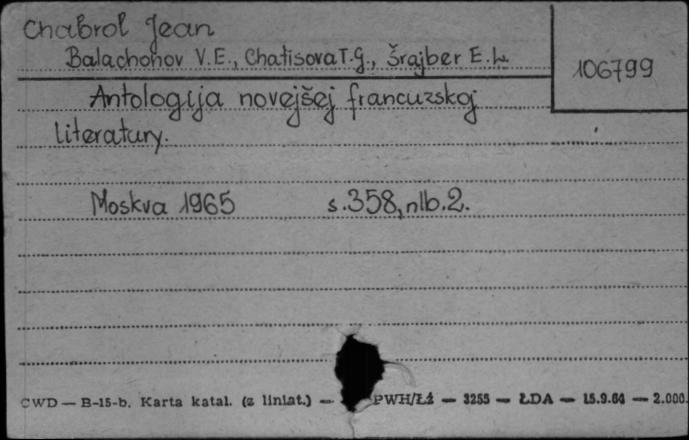 Chabrol Jean
Balachonov V.E., Chatisova T.G., Šrajber E.L.
106799
Antologija novejšej francuzskoj
literatury.
Moskva 1965 s.358, nlb.2.
CWD — B-15-b. Karta katal. (z liniat.) — PWH/Łź — 3255 — ŁDA — 15.9.64 — 2.000.